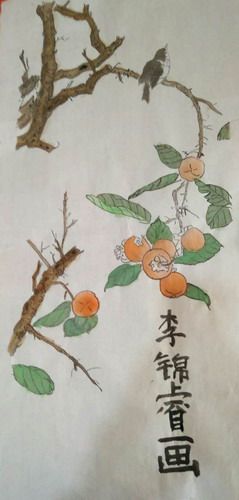 李锦睿画